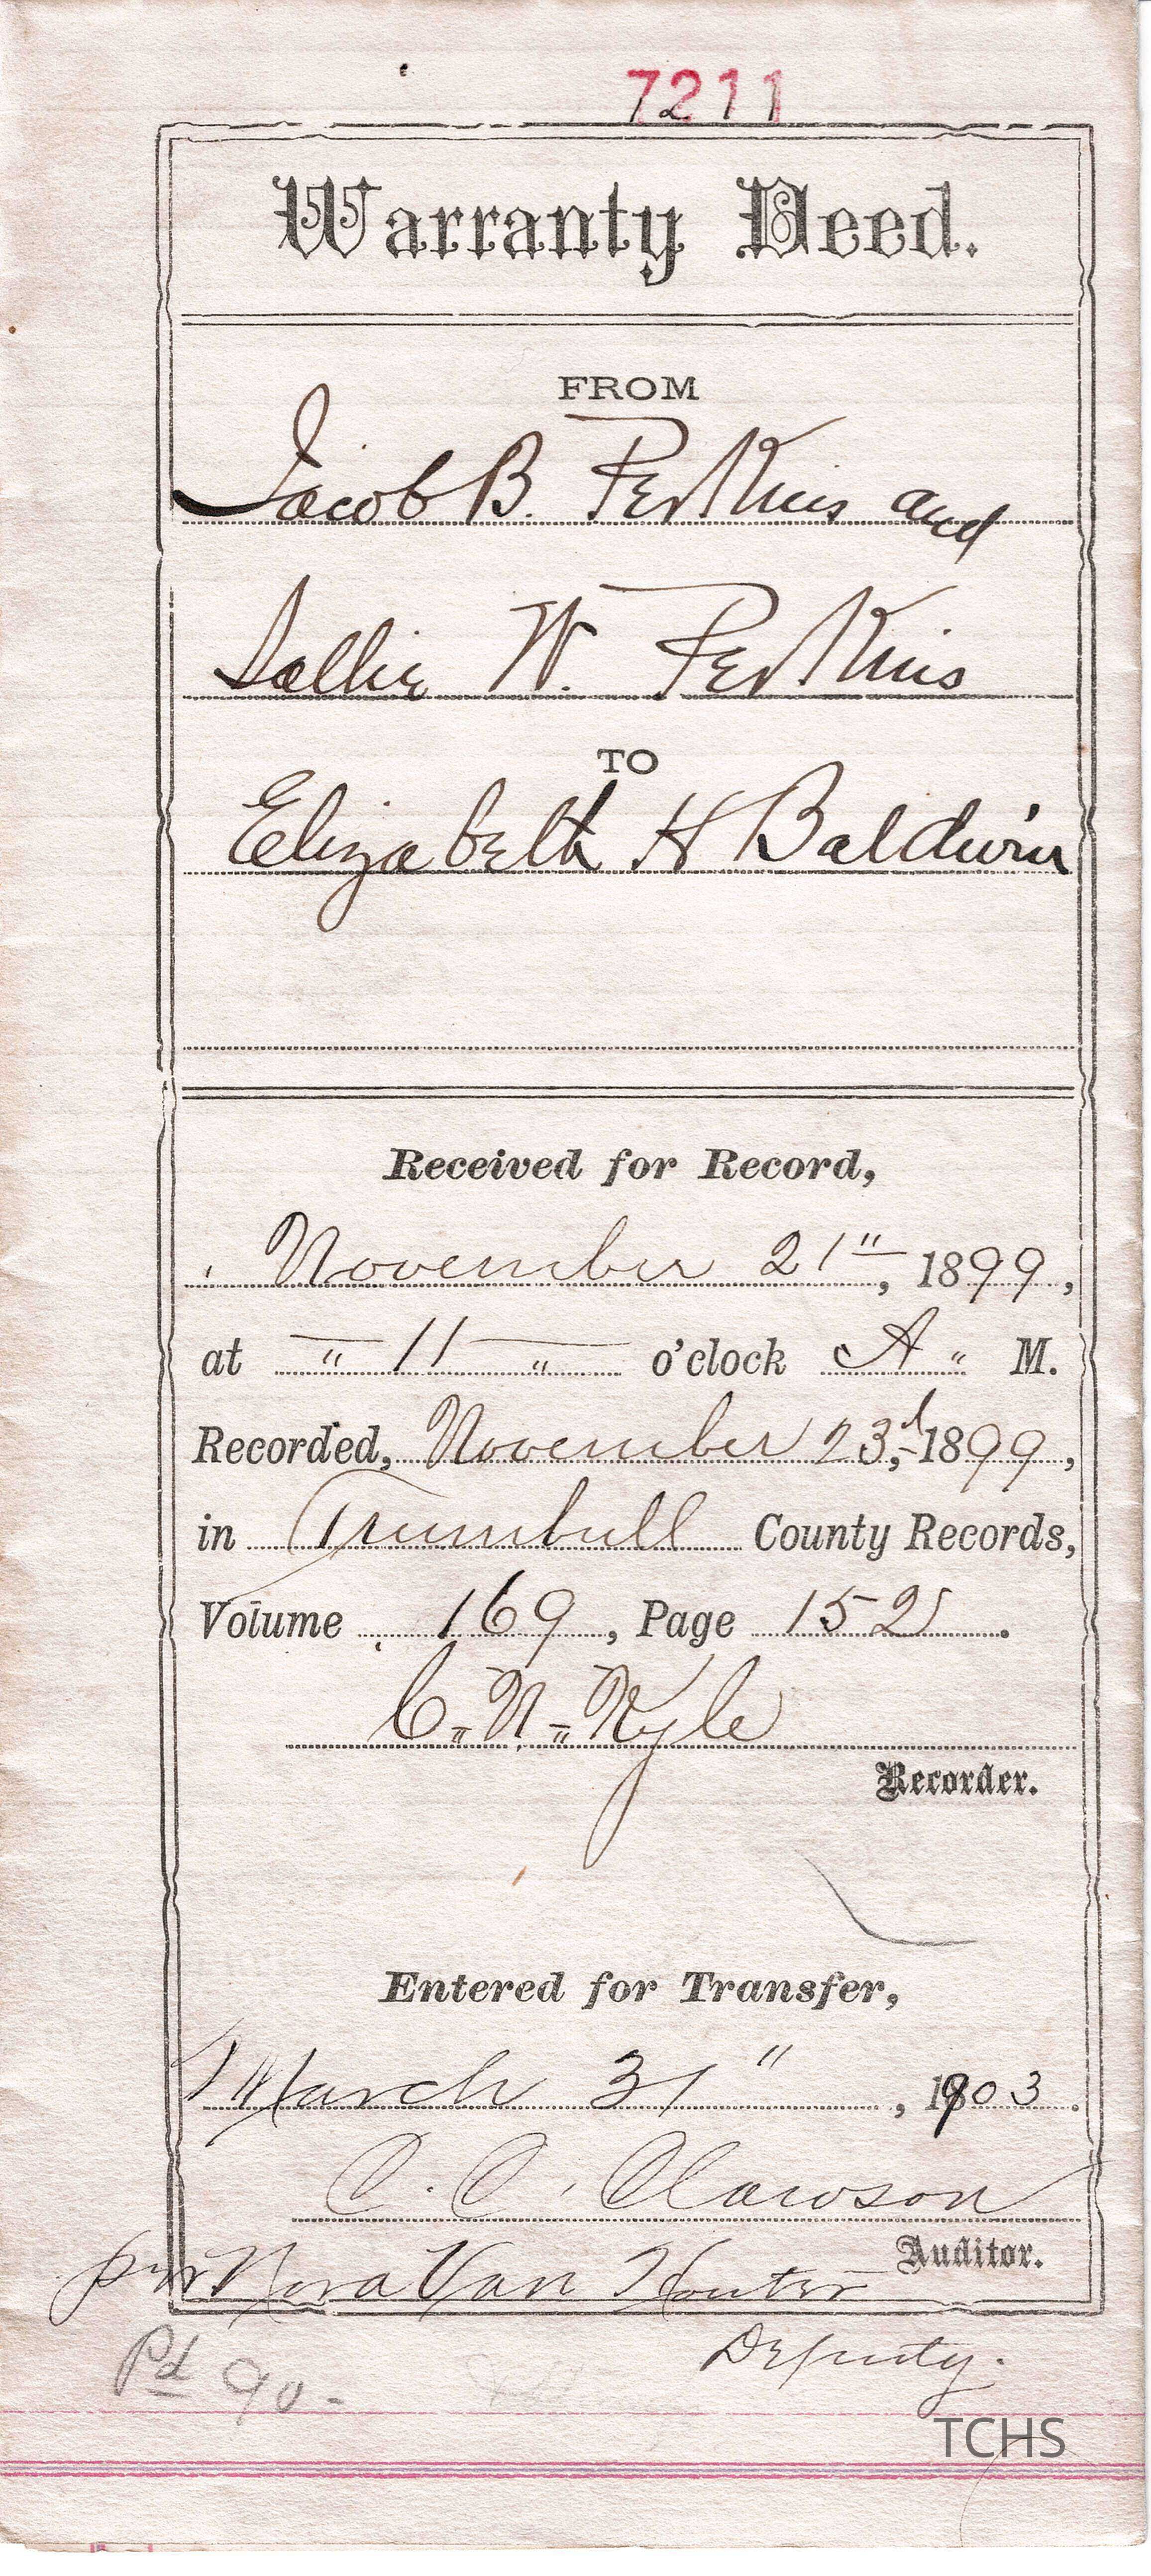 7211
Warranty Deed.
FROM
Jacob B. Perkins and
Sallie W. Perkins
TO
Elizabeth H Baldwin
Received for Record,
November 21", 1899,
at " 11 " o'clock A " M.
Recorded, November 23d, 1899,
in Trumbull County Records,
Volume 169, Page 152.
C. N. Kyle
Recorder.
Entered for Transfer,
March 31", 1903.
C. C. Clawson
Auditor.
per Nora Van Houter
Deputy.
Pd 90-
TCHS